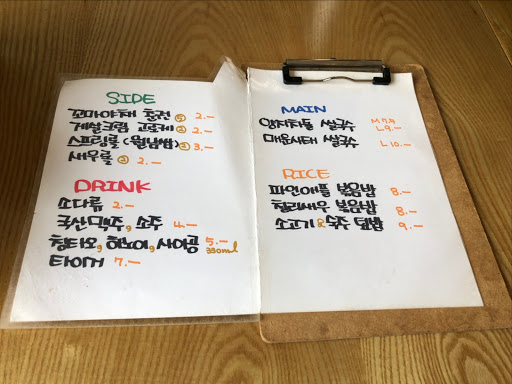 SIDE
꼬마야채 춘권 ⑤ 2.-
게살크림 고로케 ② 2.-
스프링롤(월남쌈) ② 3.-
새우롤 ② 2.-
DRINK
소다류 2.-
국산맥주, 소주 4.-
칭타오, 하노이, 사이공 5.- 330ml
타이거 7.-
MAIN
양지차돌 쌀국수 M 7.9 L 9.-
매운사태 쌀국수 L 10.-
RICE
파인애플 볶음밥 8.-
칠리새우 볶음밥 8.-
소고기&숙주 덮밥 9.-